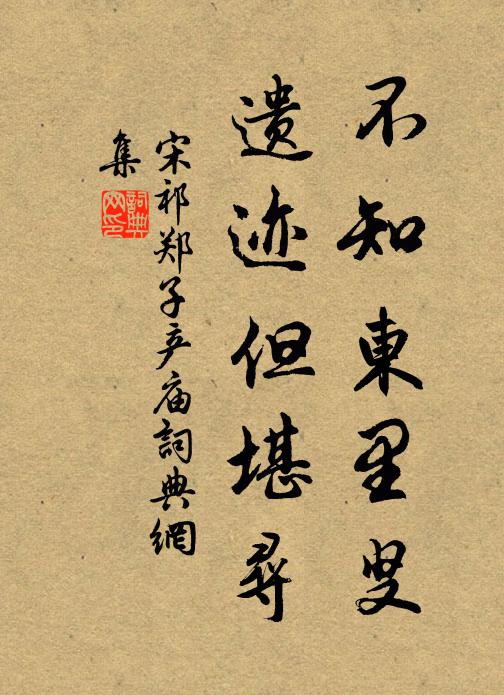 不知東里叟
遗迹但堪尋
宋祁郑子产庙詞典網
集
詞典网印